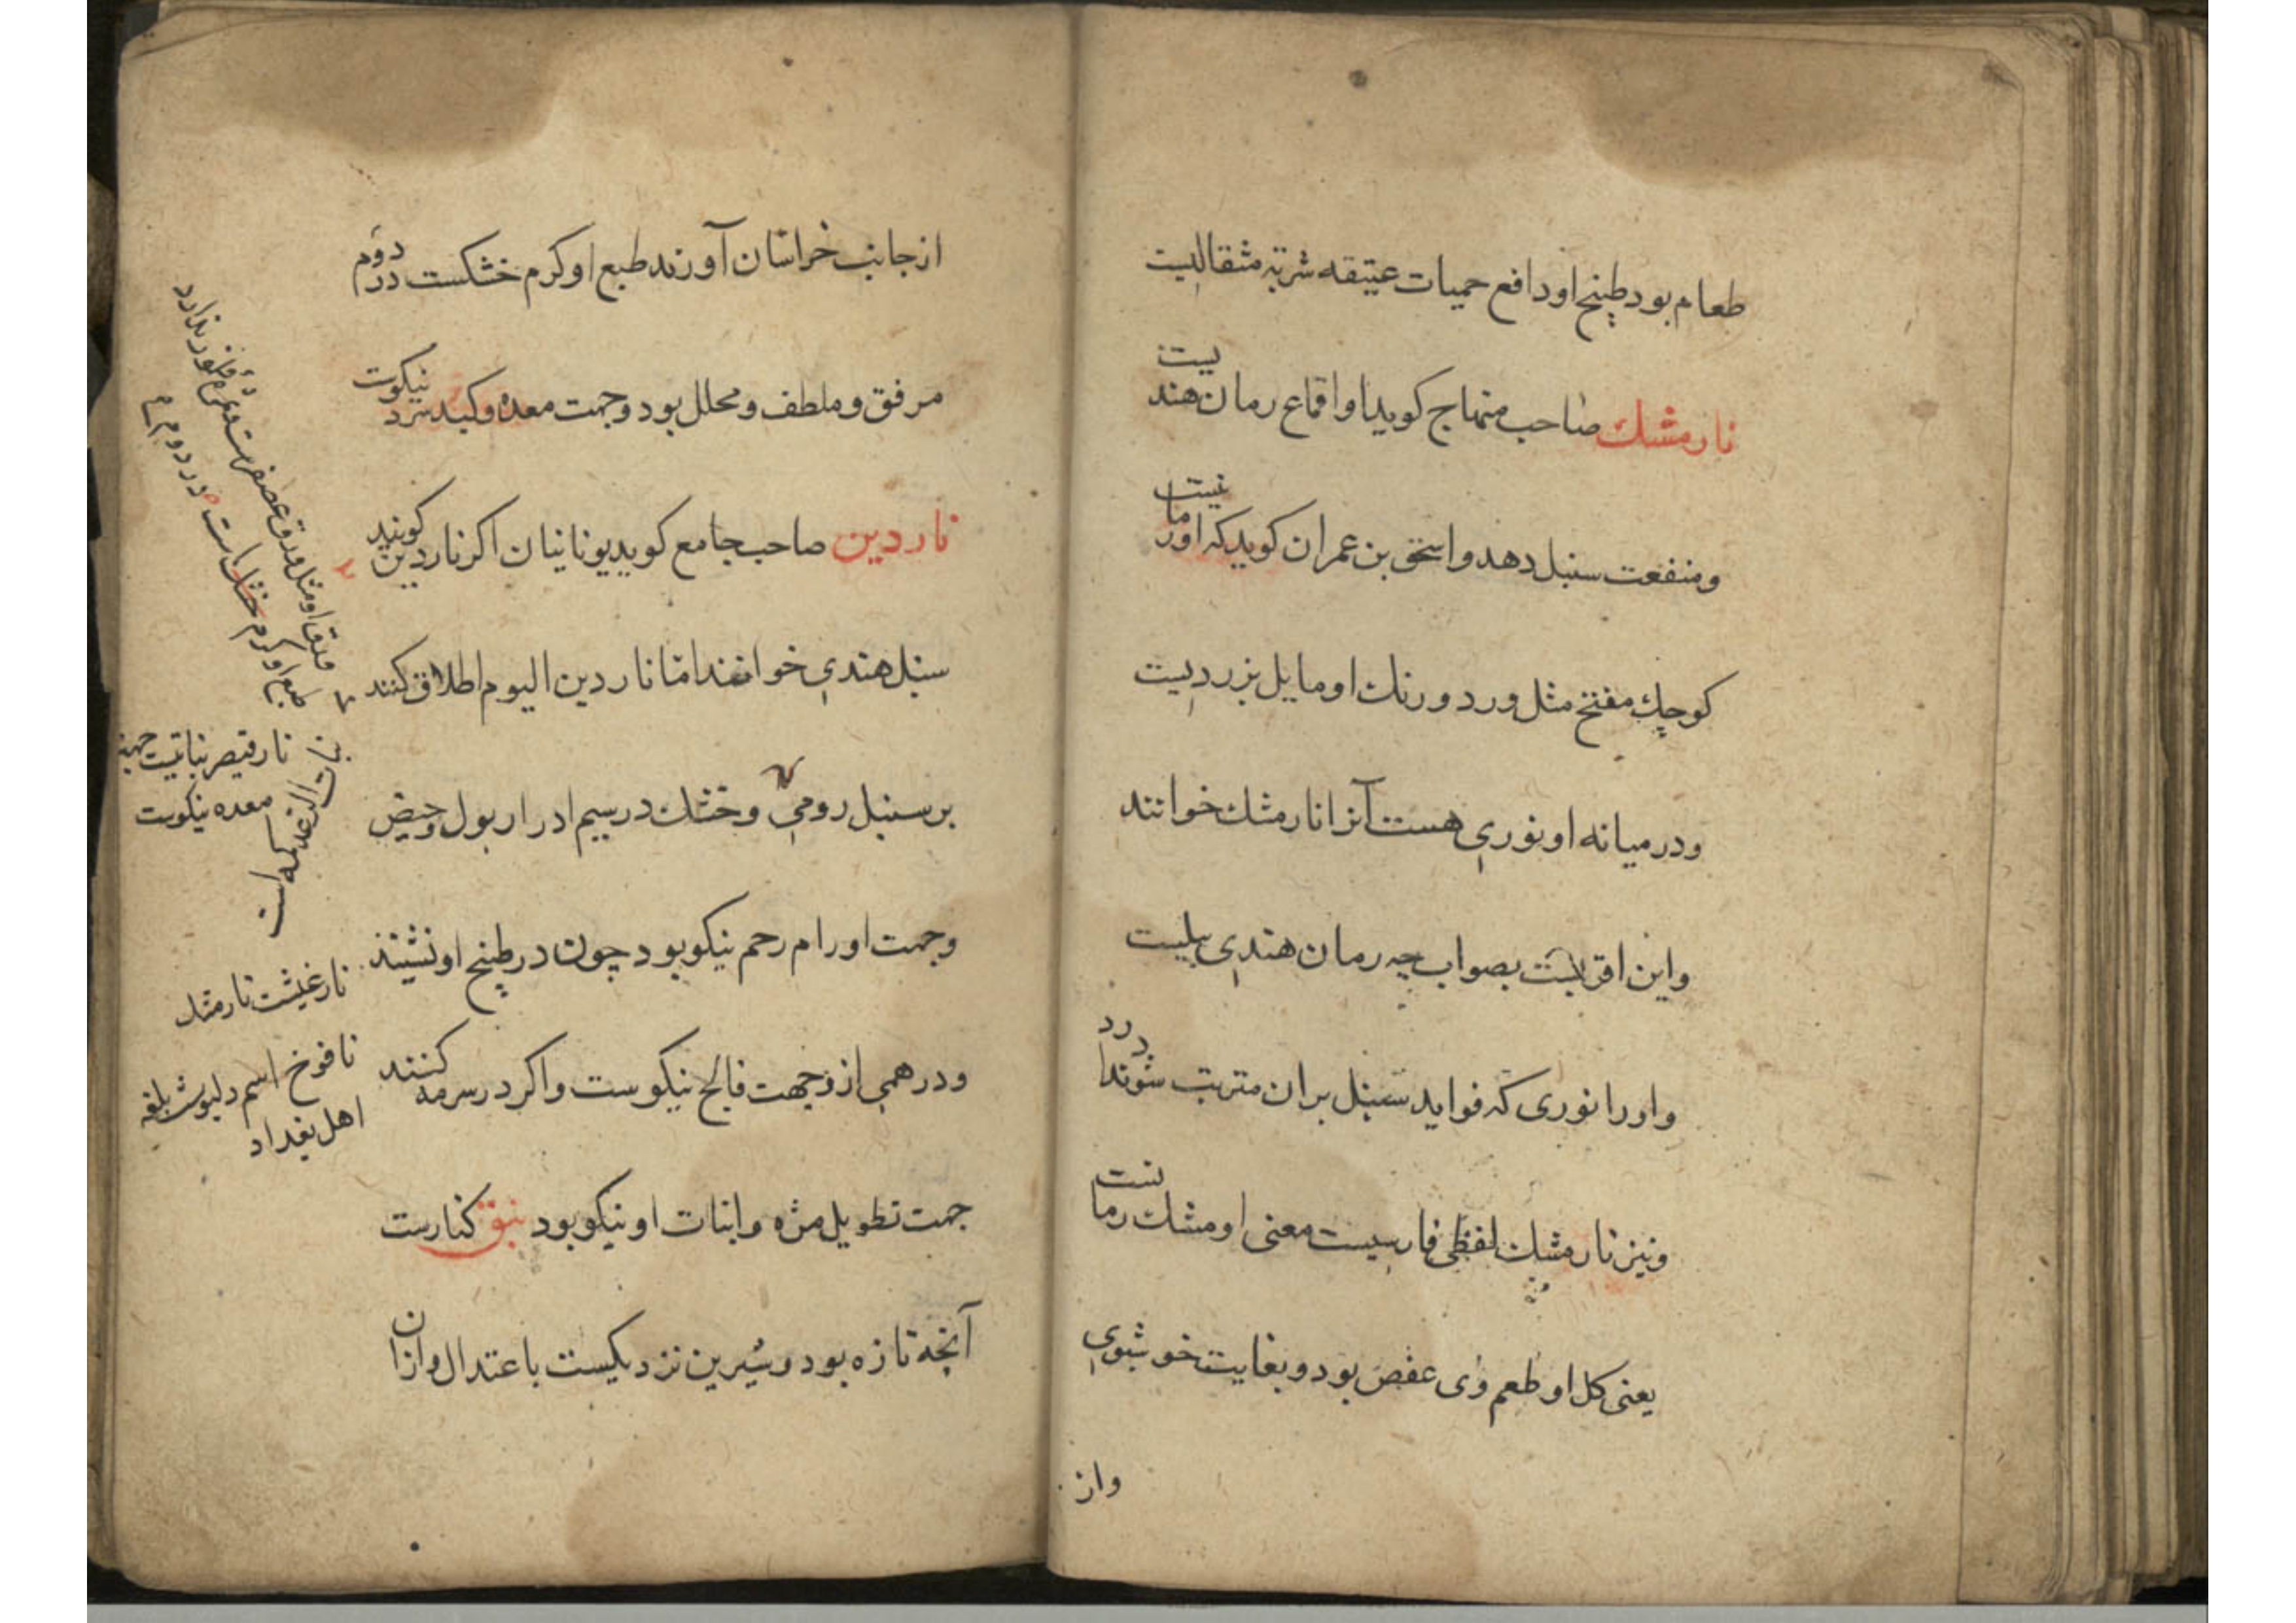 طعام بود طبیخ او دافع حمیات عتیقه شربتی مثقالیست
نارمشك صاحب منهاج کوید او اقماع رمان هندیست
ومنفعت سنبل دهد واسحق بن عمران کوید که او رمانیست
کوچك مفتح مثل ورد ورنك او مایل بزردیست
ودر میانه او نوری هست آنرا نارمشك خوانند
واین اقربست بصواب چه رمان هندی بلیست
واو را نوری که فواید سنبل بران مترتب شوند دارد
ونیز نارمشك لفظی فارسیست معنی او مشك رمانست
یعنی کل او طعم وی عفص بود وبغایت خوشبوی
واز
از جانب خراسان آورند طبع او کرم خشکست در دوم
مرفق وملطف ومحلل بود وجهت معده وکبد سرد نیکوست
ناردین صاحب جامع کوید یونانیان اکر ناردین کویند
سنبل هندی خواهند اما ناردین الیوم اطلاق کنند
بر سنبل رومی وخشك در سیم ادرار بول وحیض
وجهت اورام رحم نیکو بود چون در طبیخ او نشینند
ودرهمی ازو جهت فالج نیکوست واکر در سرمه کنند
جهت تطویل مژه وانبات او نیکو بود نبق کنارست
آنچه تازه بود وشیرین نزدیکست باعتدال وازان
ورق او مثل ورق عصفرست
طبع او کرم خشك است در دوم
نارقیصر نباتیست جهة
معده نیکوست
نبات الرعد کمه است
نارغیشت نارمشك
نافوخ اسم دلبوث بلغه
اهل بغداد